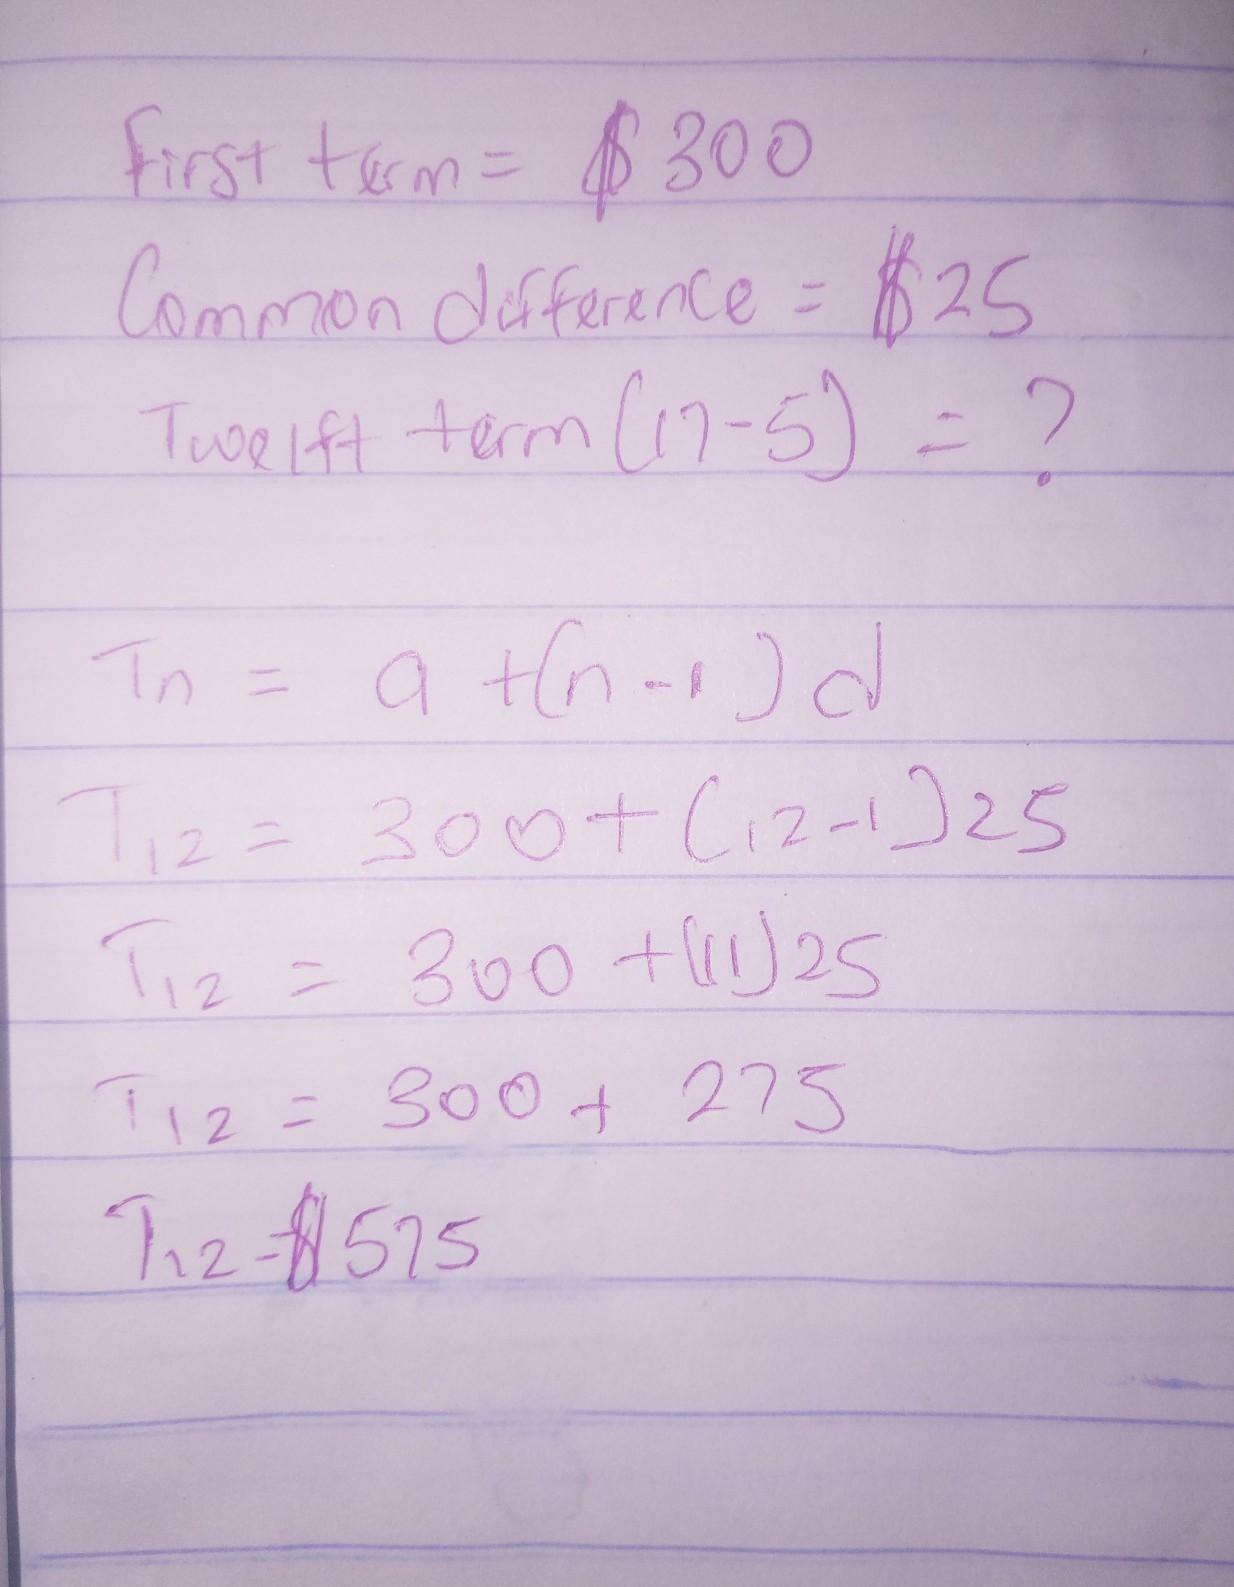 First term = $300
Common difference = $25
Twelft term (17-5) = ?
Tn = a +(n-1)d
T12 = 300+(12-1)25
T12 = 300 +(11)25
T12 = 300 + 275
T12 = $575